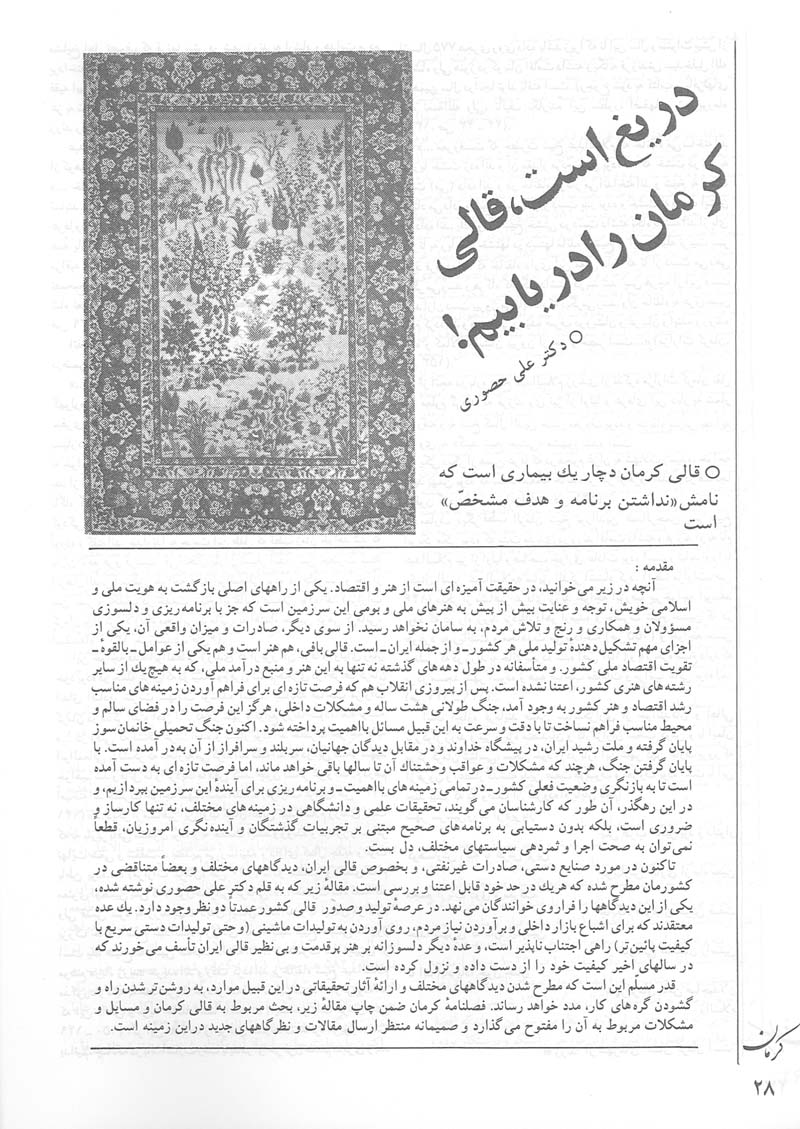 دریغ است، قالی
کرمان را دریابیم!
○ دکتر علی حصوری
○ قالی کرمان دچار یك بیماری است که
نامش «نداشتن برنامه و هدف مشخصّ»
است
مقدمه :
آنچه در زیر می‌خوانید، در حقیقت آمیزه‌ای است از هنر و اقتصاد. یکی از راههای اصلی بازگشت به هویت ملی و
اسلامی خویش، توجه و عنایت بیش از پیش به هنرهای ملی و بومی این سرزمین است که جز با برنامه‌ریزی و دلسوزی
مسؤولان و همکاری و رنج و تلاش مردم، به سامان نخواهد رسید. از سوی دیگر، صادرات و میزان واقعی آن، یکی از
اجزای مهم تشکیل‌دهندهٔ تولید ملی هر کشور ـ و از جمله ایران ـ است. قالی‌بافی، هم هنر است و هم یکی از عوامل ـ بالقوهٔ ـ
تقویت اقتصاد ملی کشور. و متأسفانه در طول دهه‌های گذشته نه تنها به این هنر و منبع درآمد ملی، که به هیچ‌یك از سایر
رشته‌های هنری کشور، اعتنا نشده است. پس از پیروزی انقلاب هم که فرصت تازه‌ای برای فراهم آوردن زمینه‌های مناسب
رشد اقتصاد و هنر کشور به وجود آمد، جنگ طولانی هشت ساله و مشکلات داخلی، هرگز این فرصت را در فضای سالم و
محیط مناسب فراهم نساخت تا با دقت و سرعت به این قبیل مسائل بااهمیت پرداخته شود. اکنون جنگ تحمیلی خانمان‌سوز
پایان گرفته و ملت رشید ایران، در پیشگاه خداوند و در مقابل دیدگان جهانیان، سربلند و سرافراز از آن به‌در آمده است. با
پایان گرفتن جنگ، هرچند که مشکلات و عواقب وحشتناك آن تا سالها باقی خواهد ماند، اما فرصت تازه‌ای به دست آمده
است تا به بازنگری وضعیت فعلی کشور ـ در تمامی زمینه‌های بااهمیت ـ و برنامه‌ریزی برای آیندهٔ این سرزمین بپردازیم، و
در این رهگذر، آن طور که کارشناسان می‌گویند، تحقیقات علمی و دانشگاهی در زمینه‌های مختلف، نه تنها کارساز و
ضروری است، بلکه بدون دستیابی به برنامه‌های صحیح مبتنی بر تجربیات گذشتگان و آینده‌نگری امروزیان، قطعاً
نمی‌توان به صحت اجرا و ثمردهی سیاستهای مختلف، دل بست.
تاکنون در مورد صنایع دستی، صادرات غیرنفتی، و بخصوص قالی ایران، دیدگاههای مختلف و بعضاً متناقضی در
کشورمان مطرح شده که هریك در حد خود قابل اعتنا و بررسی است. مقالهٔ زیر که به قلم دکتر علی حصوری نوشته شده،
یکی از این دیدگاهها را فراروی خوانندگان می‌نهد. در عرصهٔ تولید و صدور قالی کشور عمدتاً دو نظر وجود دارد. یك عده
معتقدند که برای اشباع بازار داخلی و برآوردن نیاز مردم، روی آوردن به تولیدات ماشینی (و حتی تولیدات دستی سریع با
کیفیت پائین‌تر) راهی اجتناب ناپذیر است، و عدهٔ دیگر دلسوزانه بر هنر پرقدمت و بی‌نظیر قالی ایران تأسف می‌خورند که
در سالهای اخیر کیفیت خود را از دست داده و نزول کرده است.
قدر مسلّم این است که مطرح شدن دیدگاههای مختلف و ارائهٔ آثار تحقیقاتی در این قبیل موارد، به روشن‌تر شدن راه و
گشودن گره‌های کار، مدد خواهد رساند. فصلنامهٔ کرمان ضمن چاپ مقالهٔ زیر، بحث مربوط به قالی کرمان و مسایل و
مشکلات مربوط به آن را مفتوح می‌گذارد و صمیمانه منتظر ارسال مقالات و نظرگاههای جدید دراین زمینه است.
کرمان
۲۸